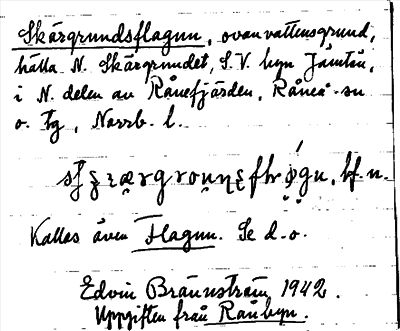 Skärgrundsflagun, ovanvattensgrund,
hälla N. Skärgrundet, S.V. byn Jämtön,
i N. delen av Rånefjärden, Råneå sn
o. tg, Norrb. l.
Kallas även Flagun. Se d.o.
Edvin Brännström 1942.
Uppgiften från Rånbyn.